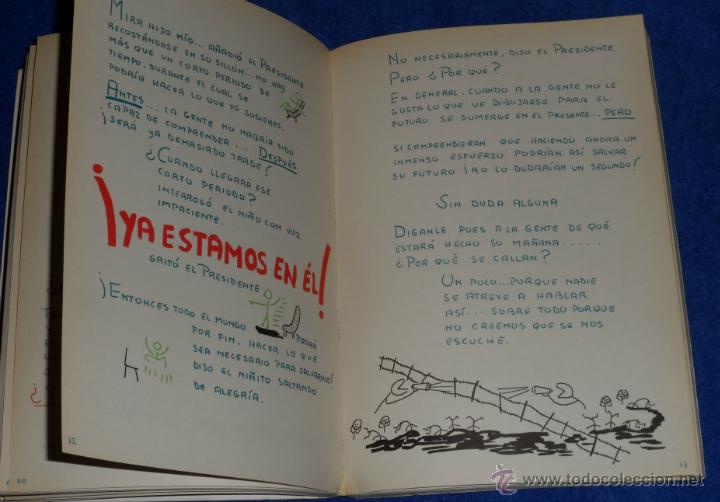 MIRA HIJO MÍO... AÑADIÓ EL PRESIDENTE
RECOSTÁNDOSE EN SU SILLÓN... NO HAY
MÁS QUE UN CORTO PERIODO DE
TIEMPO, DURANTE EL CUAL SE
PODRÍA HACER LO QUE TÚ SUGIERES.
ANTES... LA GENTE NO HABRÍA SIDO
CAPAZ DE COMPRENDER... DESPUÉS
¡SERÁ YA DEMASIADO TARDE!
¿CUANDO LLEGARÁ ESE
CORTO PERIODO?
INTERROGÓ EL NIÑO CON VOZ
IMPACIENTE.
¡YA ESTAMOS EN ÉL!
GRITÓ EL PRESIDENTE
¡ENTONCES TODO EL MUNDO PODRÁ
POR FIN, HACER LO QUE
SEA NECESARIO PARA SALVARNOS!
DIJO EL NIÑITO SALTANDO
DE ALEGRÍA.
72
70
NO NECESARIAMENTE, DIJO EL PRESIDENTE,
PERO ¿POR QUÉ?
EN GENERAL, CUANDO A LA GENTE NO LE
GUSTA LO QUE VE DIBUJARSE PARA EL
FUTURO, SE SUMERGE EN EL PRESENTE... PERO
SI COMPRENDIERAN QUE HACIENDO AHORA UN
INMENSO ESFUERZO PODRÍAN ASÍ SALVAR
SU FUTURO ¡NO LO DUDARÍAN UN SEGUNDO!
SIN DUDA ALGUNA
DIGANLE PUES A LA GENTE DE QUÉ
ESTARÁ HECHO SU MAÑANA.....
¿POR QUÉ SE CALLAN?
UN POCO... PORQUE NADIE
SE ATREVE A HABLAR
ASÍ... SOBRE TODO PORQUE
NO CREEMOS QUE SE NOS
ESCUCHE.
73
© www.todocoleccion.net